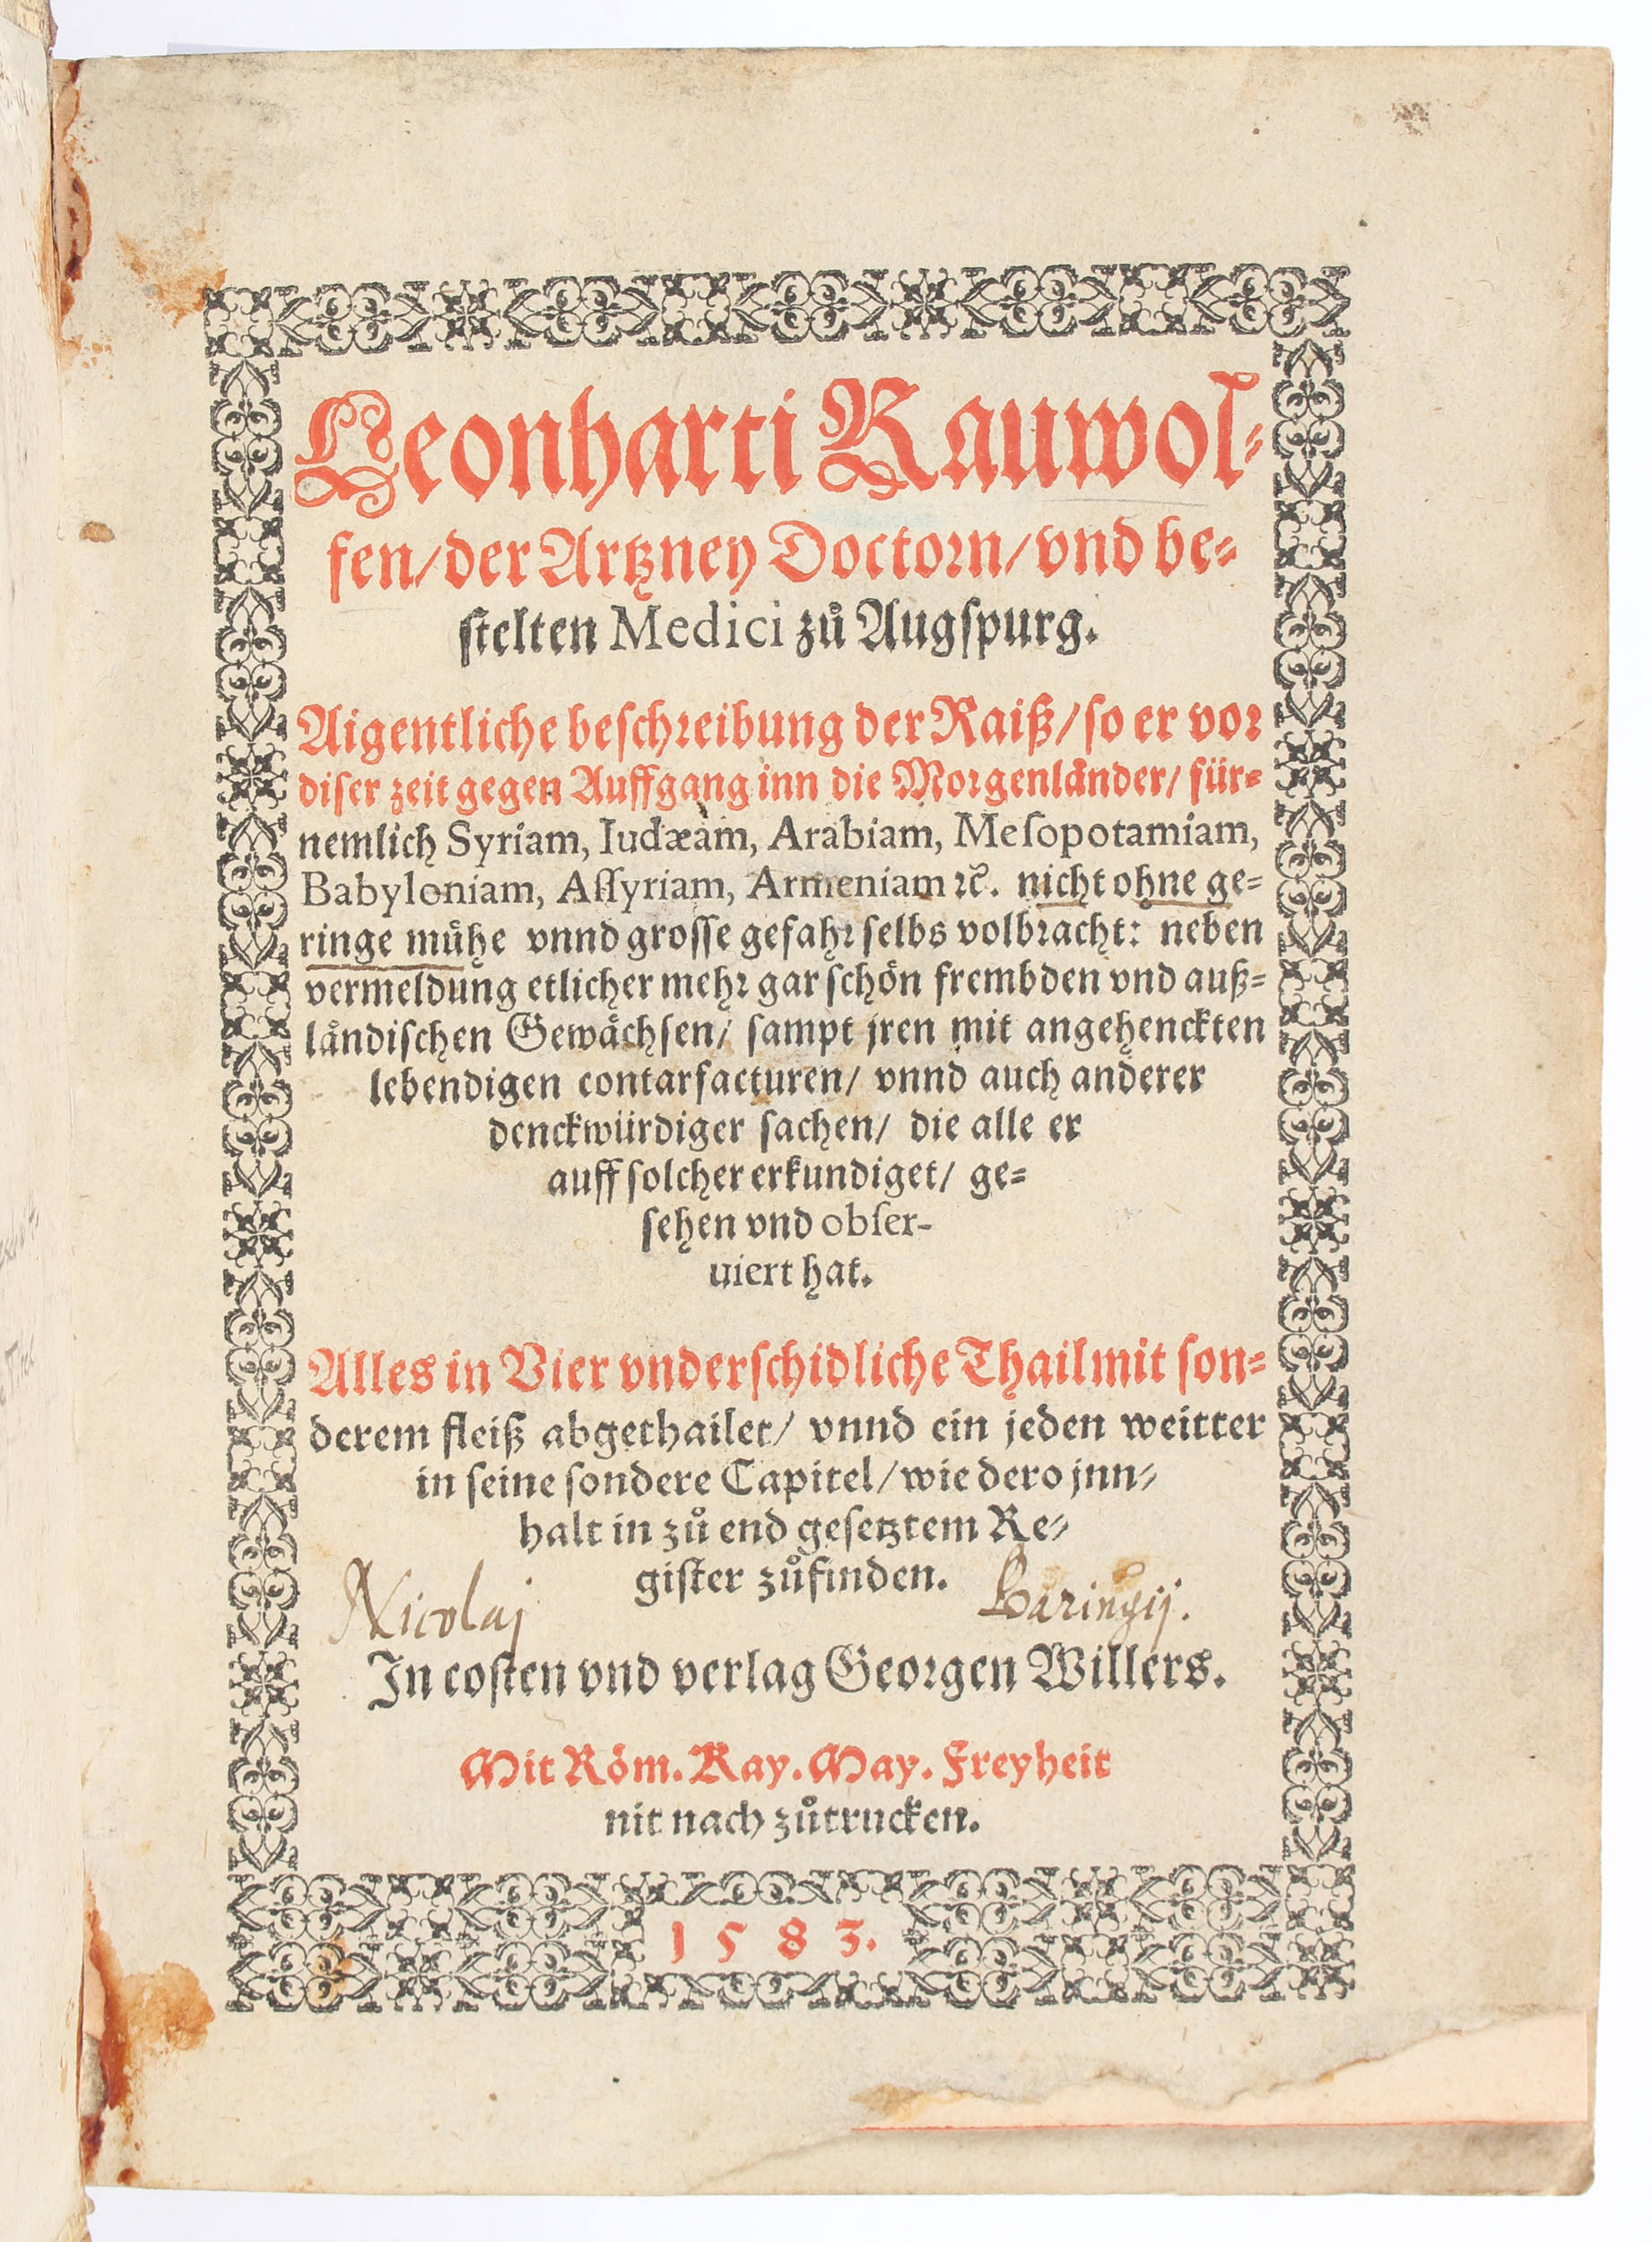 Leonharti Rauwol-
fen/ der Artzney Doctorn/ vnd be-
stelten Medici zů Augspurg.
Aigentliche beschreibung der Raiß/ so er vor
diser zeit gegen Auffgang inn die Morgenlaͤnder/ für-
nemlich Syriam, Iudæam, Arabiam, Mesopotamiam,
Babyloniam, Assyriam, Armeniam ꝛc. nicht ohne ge-
ringe muͤhe vnnd grosse gefahr selbs volbracht: neben
vermeldung etlicher mehr gar schoͤn frembden vnd auß-
laͤndischen Gewaͤchsen/ sampt jren mit angehenckten
lebendigen contarfacturen/ vnnd auch anderer
denckwürdiger sachen/ die alle er
auff solcher erkundiget/ ge-
sehen vnd obser-
uiert hat.
Alles in Vier vnderschidliche Thail mit son-
derem fleiß abgethailet/ vnnd ein jeden weitter
in seine sondere Capitel/ wie dero jnn-
halt in zů end gesetztem Re-
gister zůfinden.
Nicolaj Baringij.
In costen vnd verlag Georgen Willers.
Mit Röm. Kay. May. Freyheit
nit nach zůtrucken.
1583.